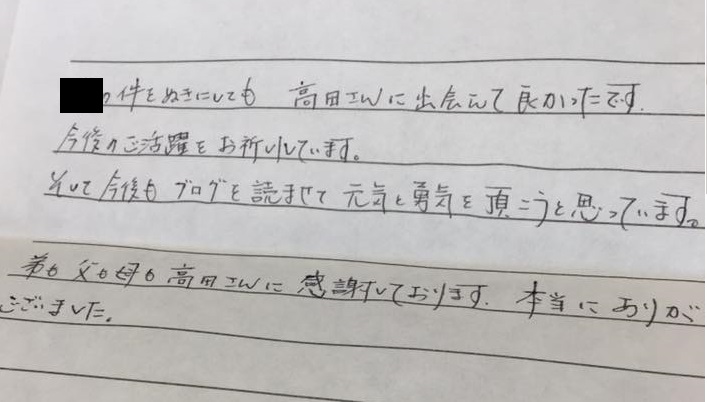 の件をぬきにしても 高田さんに出会えて良かったです.
今後のご活躍をお祈りしています。
そして今後も ブログを読ませて 元気と勇気を頂こうと思っています。
弟も 父も母も 高田さんに 感謝しております. 本当にありが
ございました.